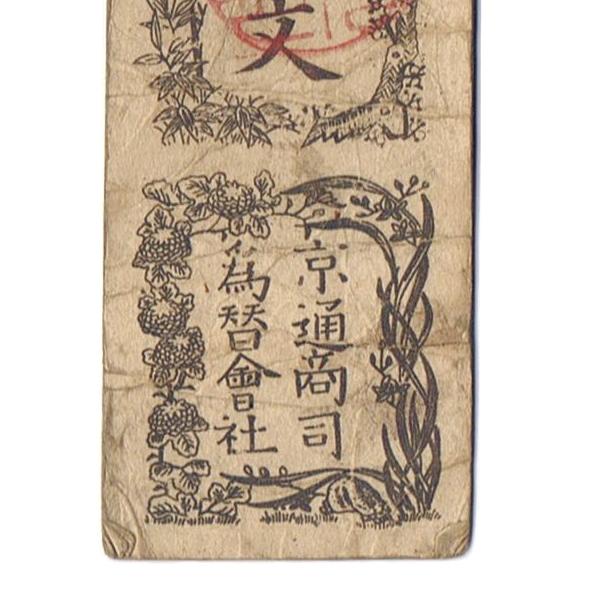 文
京通商司
為替會社